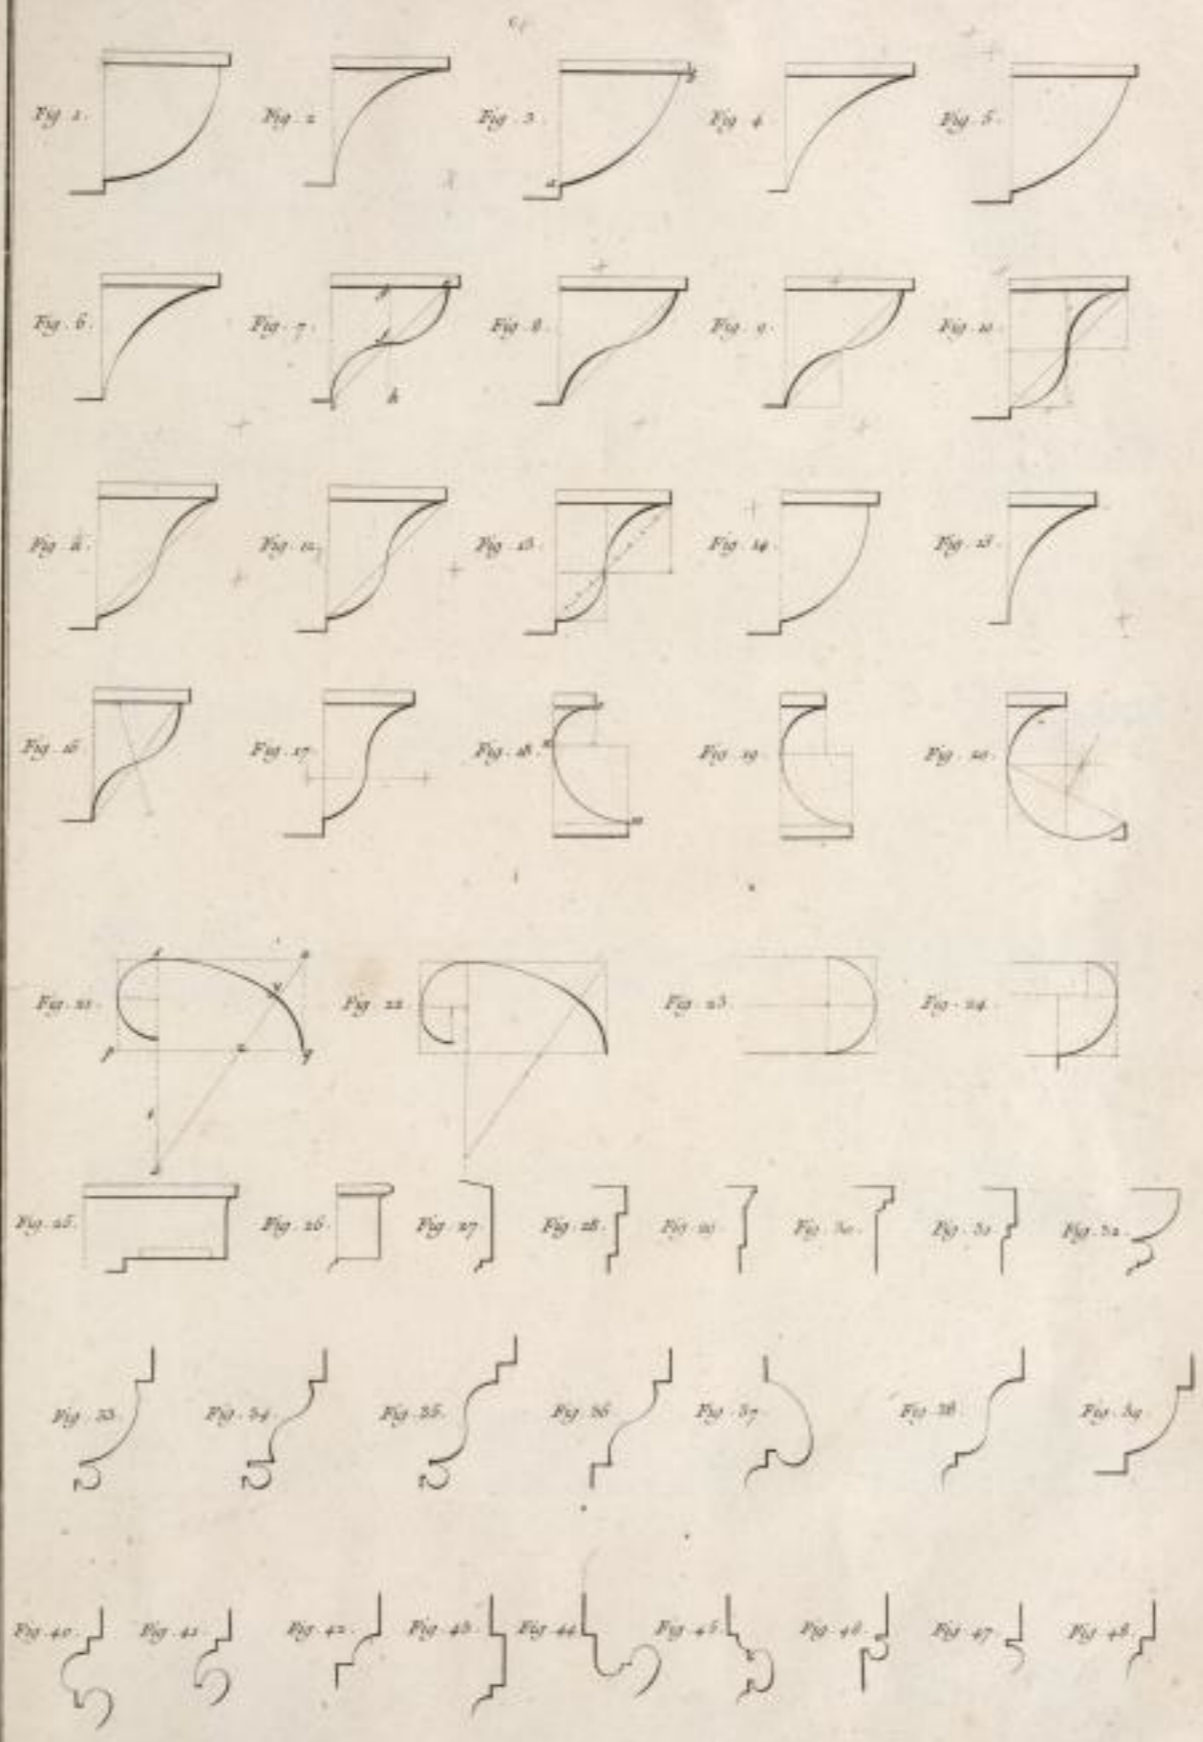 Fig. 1. Fig. 2 Fig. 3. Fig. 4. Fig. 5.
b
a
Fig. 6. Fig. 7. Fig. 8. Fig. 9. Fig. 10.
g
f
h
Fig. 11. Fig. 12. Fig. 13. Fig. 14. Fig. 15.
Fig. 16 Fig. 17. Fig. 18. Fig. 19. Fig. 20.
m
Fig. 21. Fig. 22. Fig. 23 Fig. 24.
p q
Fig. 25. Fig. 26. Fig. 27. Fig. 28. Fig. 29. Fig. 30. Fig. 31. Fig. 32.
Fig. 33. Fig. 34. Fig. 35. Fig. 36. Fig. 37. Fig. 38. Fig. 39.
Fig. 40. Fig. 41. Fig. 42. Fig. 43. Fig. 44. Fig. 45. Fig. 46. Fig. 47. Fig. 48.